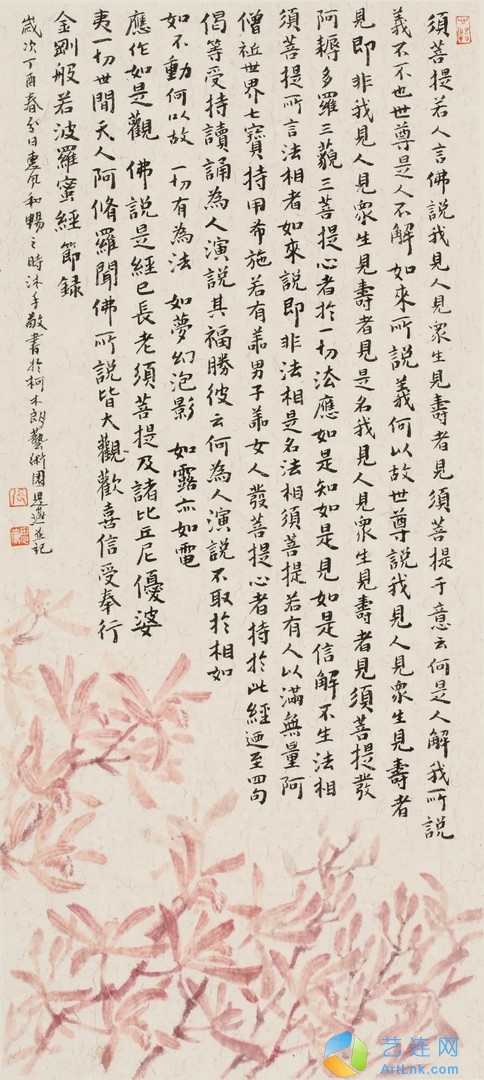 須菩提若人言佛說我見人見眾生見壽者見須菩提于意云何是人解我所說
義不不也世尊是人不解如來所說義何以故世尊說我見人見眾生見壽者
見即非我見人見眾生見壽者見是名我見人見眾生見壽者見須菩提發
阿耨多羅三藐三菩提心者於一切法應如是知如是見如是信解不生法相
須菩提所言法相者如來說即非法相是名法相須菩提若有人以滿無量阿
僧祇世界七寶持用布施若有善男子善女人發菩提心者持於此經迺至四句
偈等受持讀誦為人演說其福勝彼云何為人演說不取於相如
如不動何以故 一切有為法 如夢幻泡影 如露亦如電
應作如是觀 佛說是經已長老須菩提及諸比丘尼優婆
夷一切世間天人阿脩羅聞佛所說皆大觀歡喜信受奉行
金剛般若波羅蜜經節錄
歲次丁酉春分日惠風和暢之時沐手敬書於柯木朗藝術園 並記
艺连网
ArtLnk.com